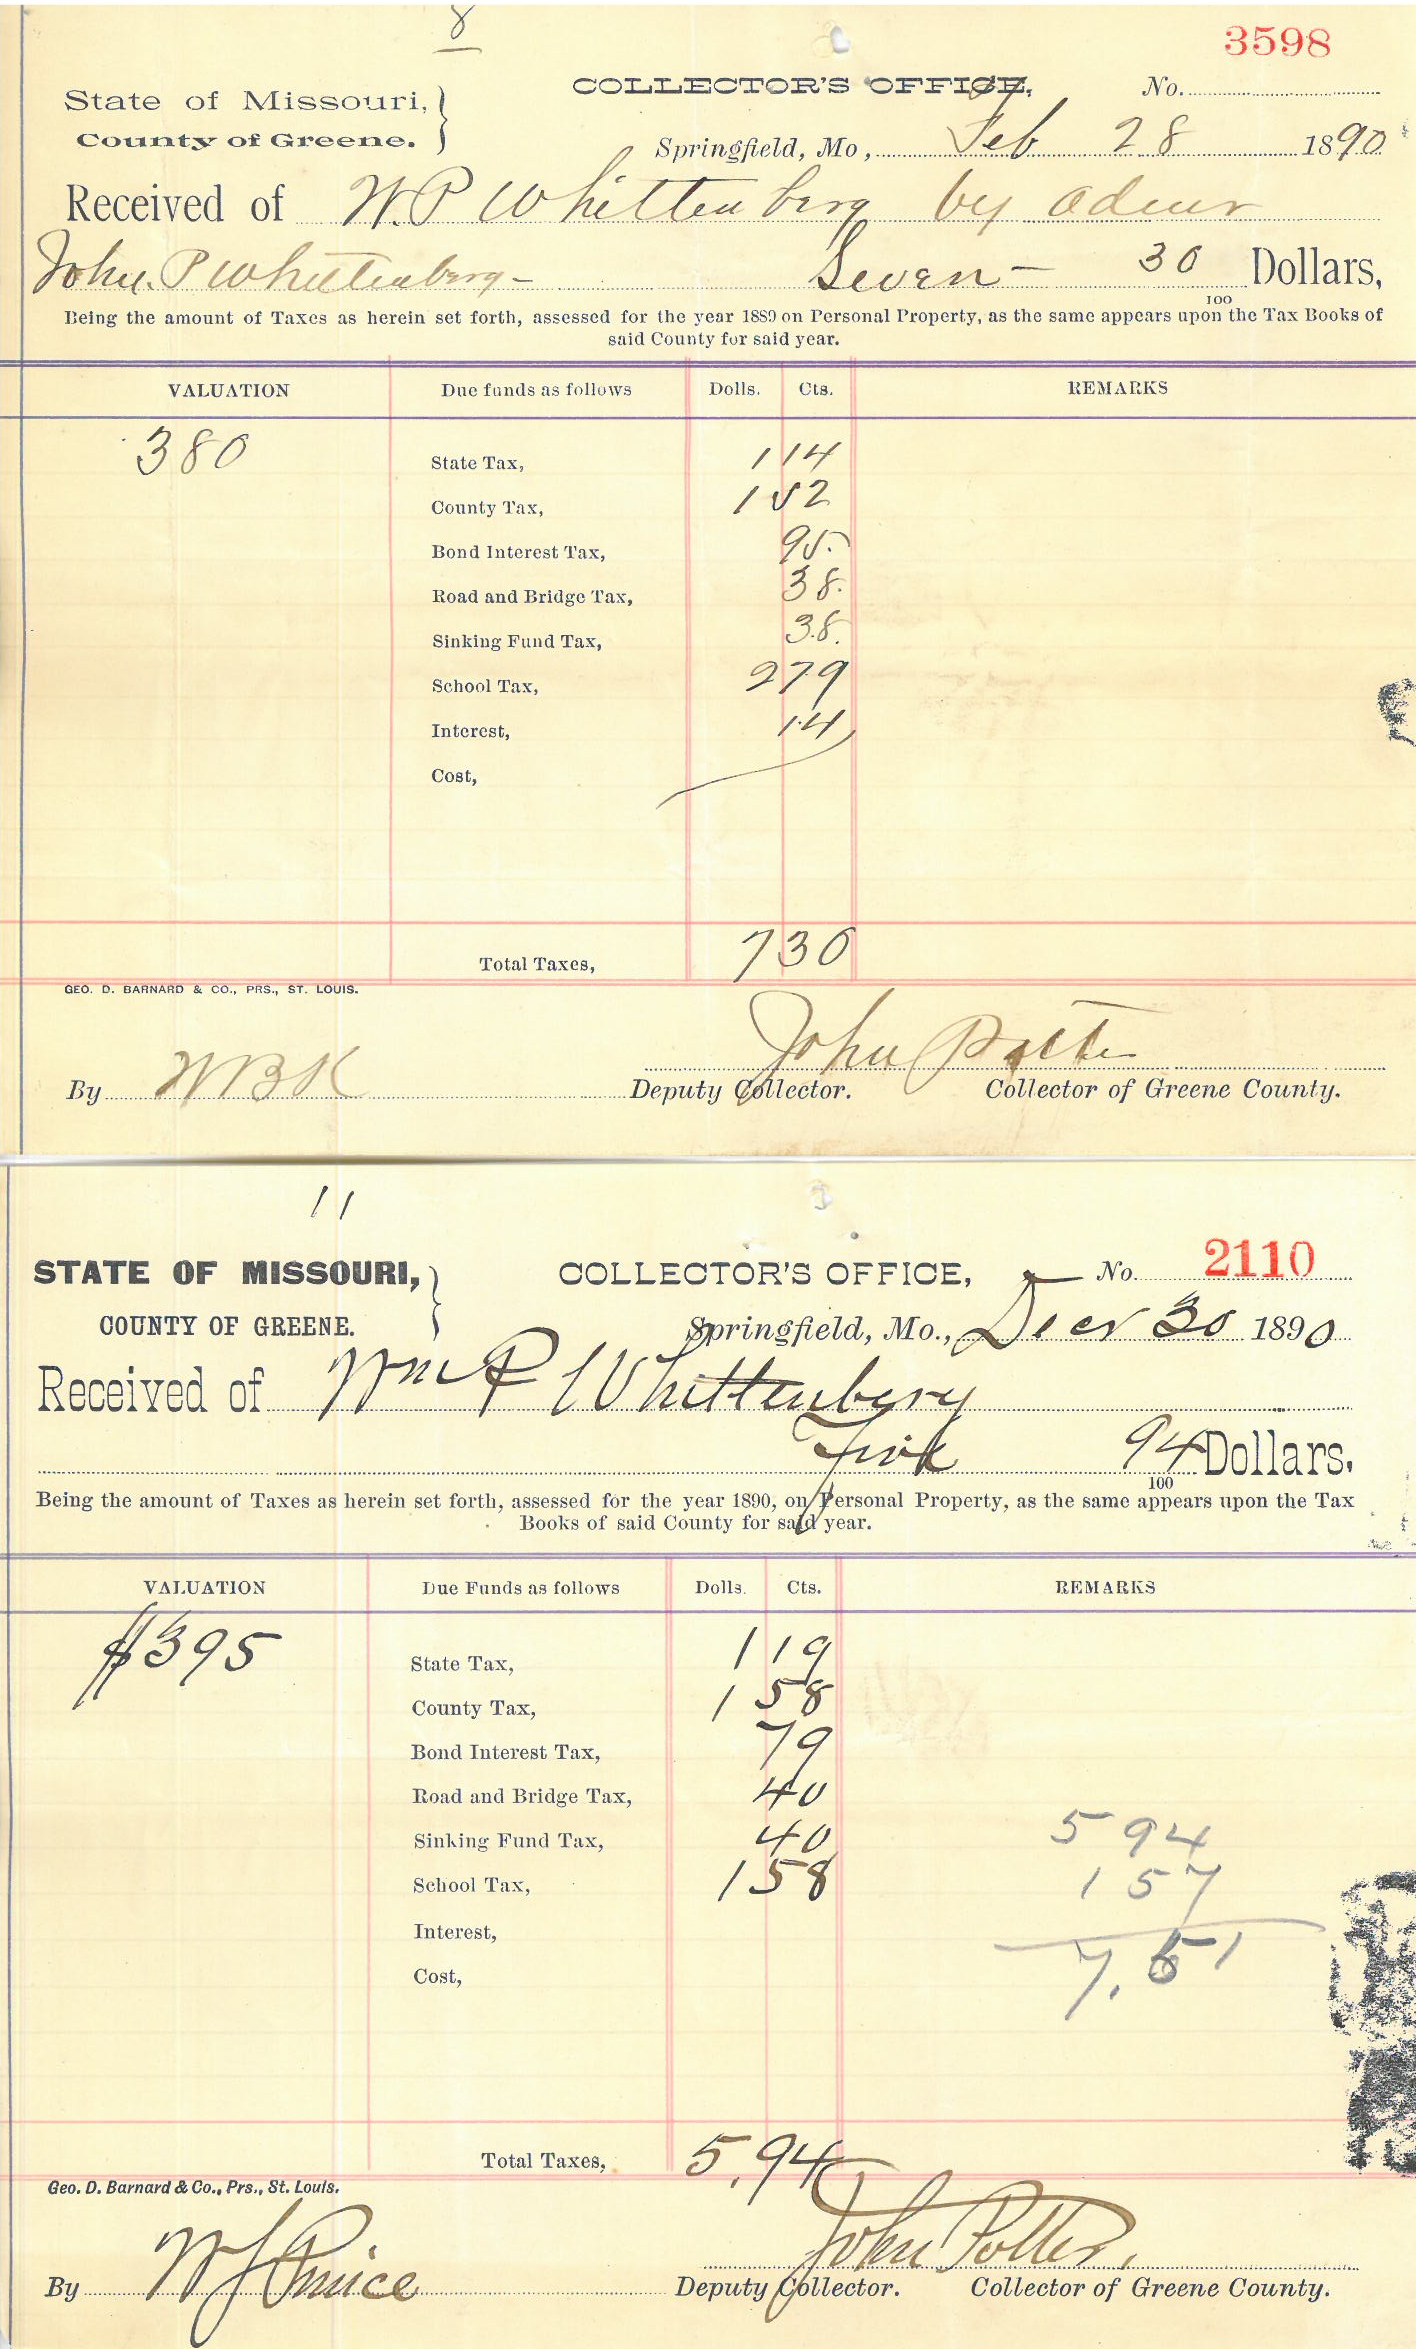 8
3598
State of Missouri,
County of Greene.
COLLECTOR'S OFFICE,
No.
Springfield, Mo, Feb 28 1890
Received of W.P. Whittenberg by admr
John. P Whittenberg - Seven - 30/100 Dollars,
Being the amount of Taxes as herein set forth, assessed for the year 1889 on Personal Property, as the same appears upon the Tax Books of
said County for said year.
VALUATION Due funds as follows Dolls. Cts. REMARKS
380
State Tax, 1 14
County Tax, 1 52
Bond Interest Tax, 95.
Road and Bridge Tax, 38.
Sinking Fund Tax, 38.
School Tax, 2 79
Interest, 14
Cost,
Total Taxes, 7 30
GEO. D. BARNARD & CO., PRS., ST. LOUIS.
John Potter
By WBK Deputy Collector. Collector of Greene County.
11
STATE OF MISSOURI,
COUNTY OF GREENE.
COLLECTOR'S OFFICE, No. 2110
Springfield, Mo., Decr 30 1890
Received of Wm P Whittenberg
Five 94/100 Dollars.
Being the amount of Taxes as herein set forth, assessed for the year 1890, on Personal Property, as the same appears upon the Tax
Books of said County for said year.
VALUATION Due Funds as follows Dolls. Cts. REMARKS
$395
State Tax, 1 19
County Tax, 1 58
Bond Interest Tax, 79
Road and Bridge Tax, 40
Sinking Fund Tax, 40 5 94
School Tax, 1 58 1 57
Interest, 7.51
Cost,
Total Taxes, 5.94
Geo. D. Barnard & Co., Prs., St. Louis.
John Potter,
By Deputy Collector. Collector of Greene County.